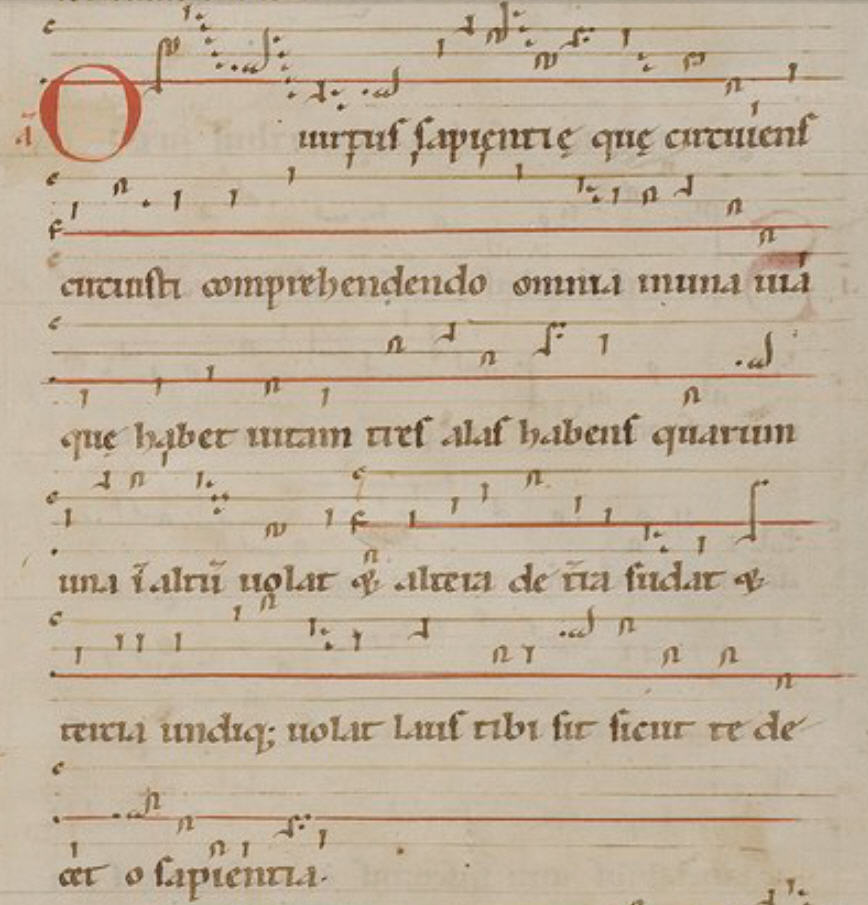 O uirtus sapientię quę circuiens
circuisti comprehendendo omnia in una uia
quę habet uitam tres alas habens quarum
una ī altū uolat & altera de t̄ra sudat &
tercia undiq; uolat Laus tibi sit sicut te de
cet o sapientia.